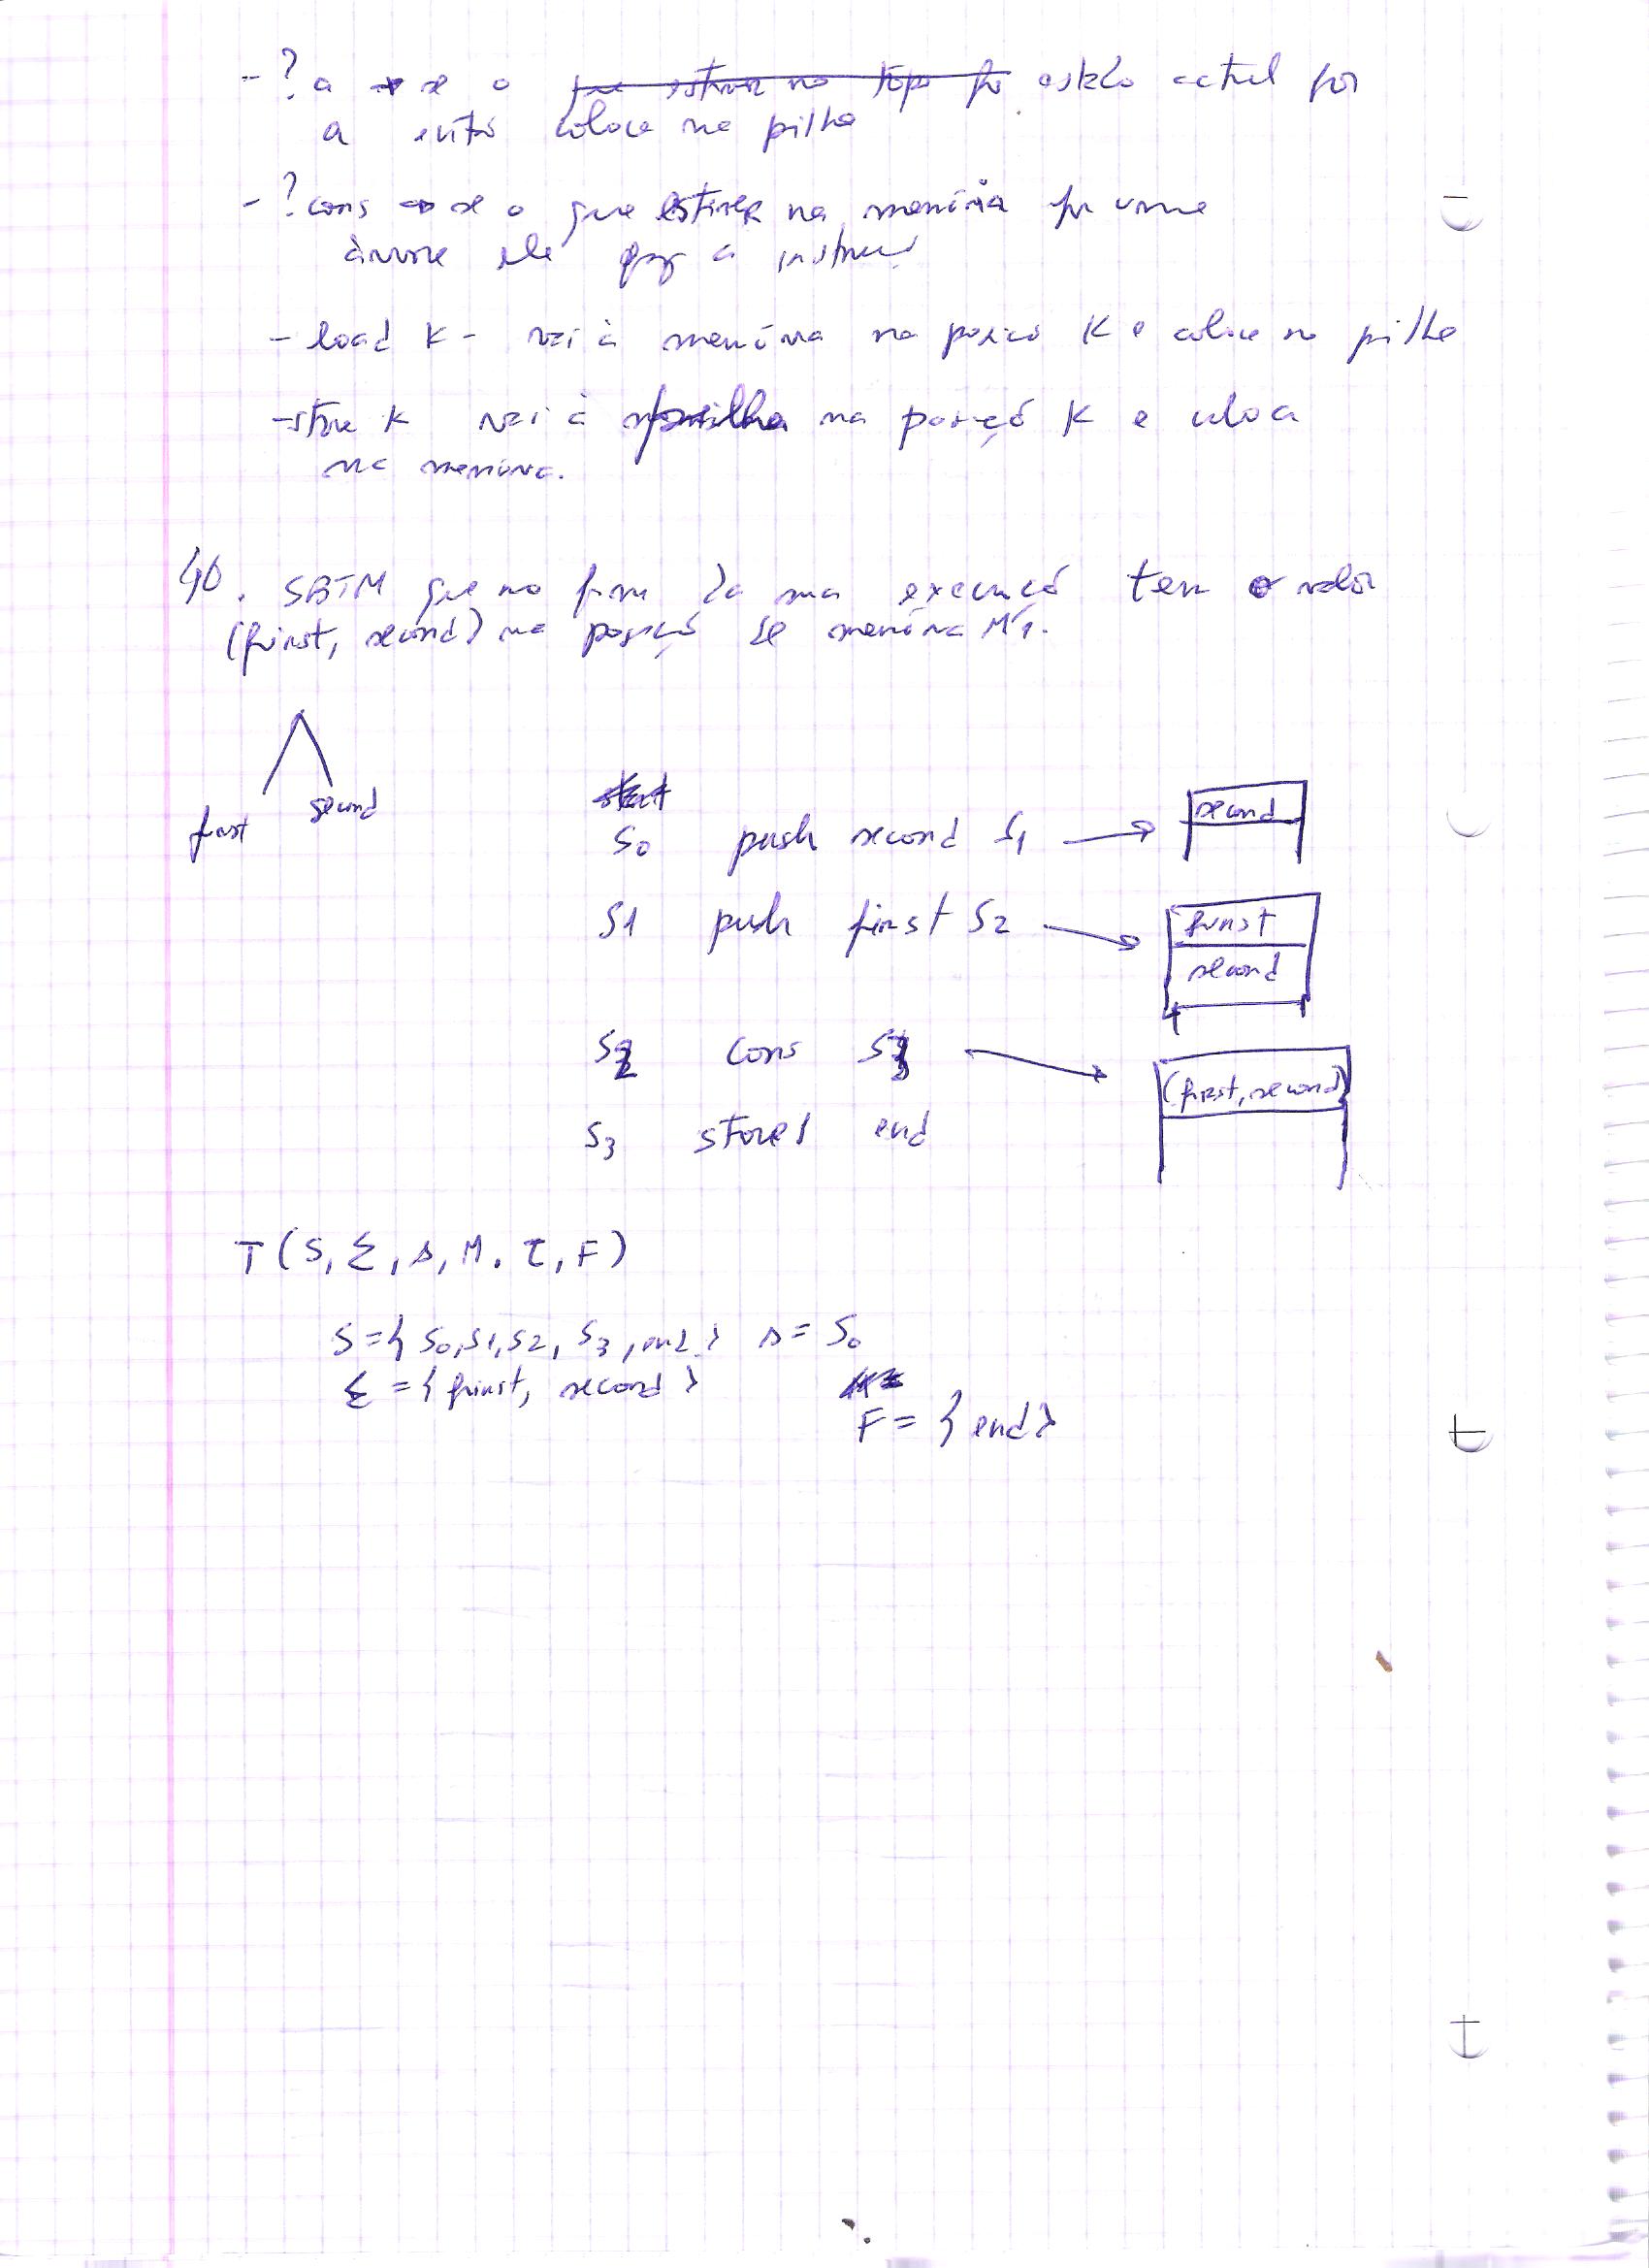 - ? a → se o que estiver no topo for estado actual for
a então coloca na pilha
- ? cons → se o que estiver na memória for uma
árvore ele faz a instrucº
- load K - vai à memória na posicão K e coloca na pilha
- store K vai à pilha na posição K e coloca
na memória.
40. SBTM que no fim da sua execução tem o valor
(first, second) na posição de memória M1.
first second
start
S0 push second S1 → second
S1 push first S2 → first
second
S2 cons S3 → (first, second)
S3 store 1 end
T (S, Σ, s, M, τ, F)
S = { S0, S1, S2, S3, end } s = S0
Σ = { first, second }
F = { end }